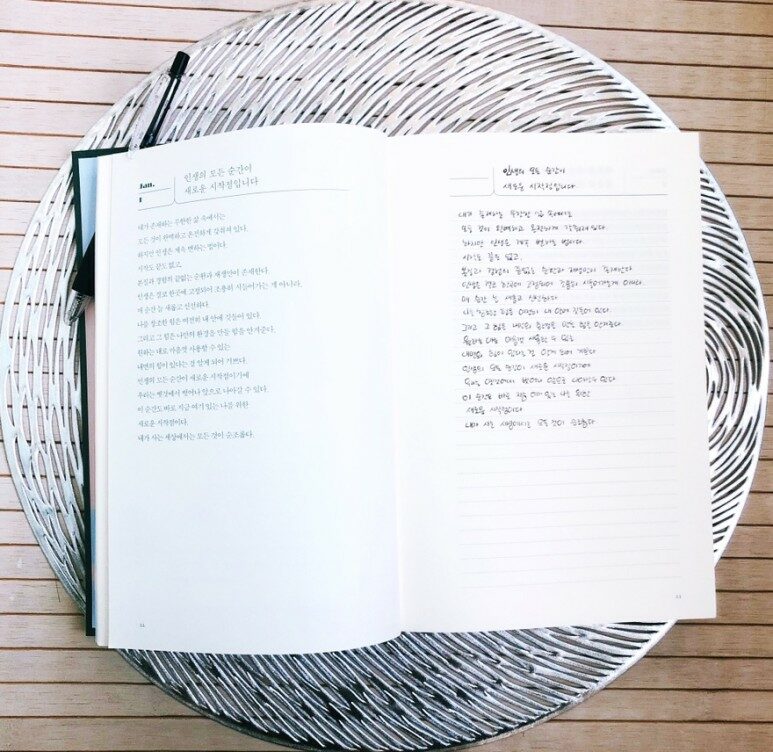 Jan.
1
인생의 모든 순간이
새로운 시작점입니다
내가 존재하는 무한한 삶 속에서는
모든 것이 완벽하고 온전하게 갖춰져 있다.
하지만 인생은 계속 변하는 법이다.
시작도 끝도 없고,
본질과 경험의 끝없는 순환과 재생만이 존재한다.
인생은 결코 한곳에 고정되어 조용히 시들어가는 게 아니라,
매 순간 늘 새롭고 신선하다.
나를 창조한 힘은 여전히 내 안에 깃들어 있다.
그리고 그 힘은 나만의 환경을 만들 힘을 안겨준다.
원하는 대로 마음껏 사용할 수 있는
내면의 힘이 있다는 걸 알게 되어 기쁘다.
인생의 모든 순간이 새로운 시작점이기에
우리는 옛것에서 벗어나 앞으로 나아갈 수 있다.
이 순간도 바로 지금 여기 있는 나를 위한
새로운 시작점이다.
내가 사는 세상에서는 모든 것이 순조롭다.
인생의 모든 순간이
새로운 시작점입니다
내가 존재하는 무한한 삶 속에서는
모든 것이 완벽하고 온전하게 갖춰져 있다
하지만 인생은 계속 변하는 법이다.
시작도 끝도 없고,
본질과 경험의 끝없는 순환과 재생만이 존재한다
인생은 결코 한곳에 고정되어 조용히 시들어가는게 아니라
매 순간 늘 새롭고 신선하다
나를 창조한 힘은 여전히 내 안에 깃들어 있다.
그리고 그 힘은 나만의 환경을 만들 힘을 안겨준다
원하는 대로 마음껏 사용할 수 있는
내면의 힘이 있다는 걸 알게 되어 기쁘다
인생의 모든 순간이 새로운 시작점이기에
우리는 옛것에서 벗어나 앞으로 나아갈 수 있다
이 순간도 바로 지금 여기 있는 나를 위한
새로운 시작점이다
내가 사는 세상에서는 모든 것이 순조롭다